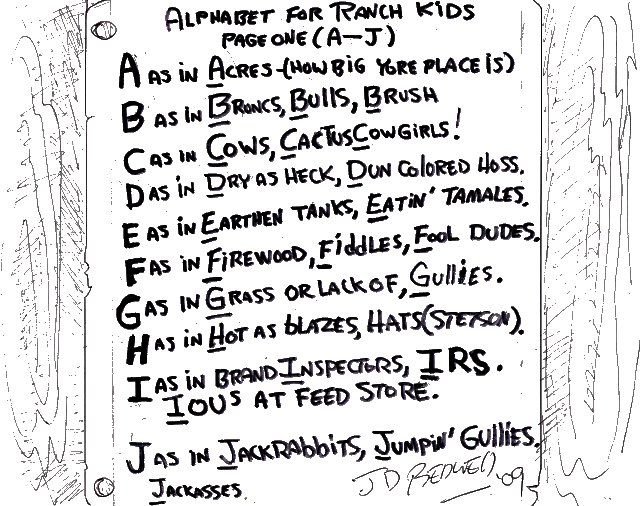 ALPHABET FOR RANCH KIDS
PAGE ONE (A-J)
A AS IN ACRES-(HOW BIG YORE PLACE IS)
B AS IN BRONCS, BULLS, BRUSH
C AS IN COWS, CACTUS COWGIRLS!
D AS IN DRY AS HECK, DUN COLORED HOSS.
E AS IN EARTHEN TANKS, EATIN' TAMALES.
F AS IN FIREWOOD, FIDDLES, FOOL DUDES.
G AS IN GRASS OR LACK OF, GULLIES.
H AS IN HOT AS BLAZES, HATS (STETSON).
I AS IN BRAND INSPECTORS, IRS.
IOUS AT FEED STORE.
J AS IN JACKRABBITS, JUMPIN' GULLIES.
JACKASSES
JD BEDWELL '09